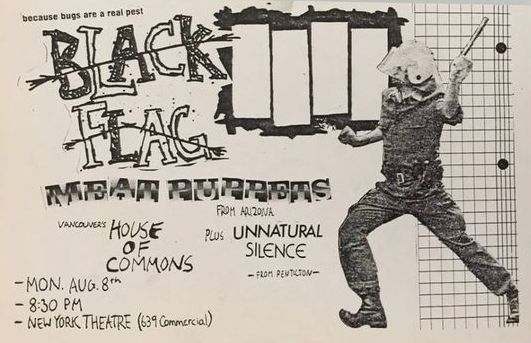 because bugs are a real pest
BLACK
FLAG
MEAT PUPPETS
FROM ARIZONA
VANCOUVER'S HOUSE
OF
COMMONS
PLUS UNNATURAL
SILENCE
- FROM PENTICTON -
- MON. AUG. 8th
- 8:30 PM
- NEW YORK THEATRE (639 Commercial)